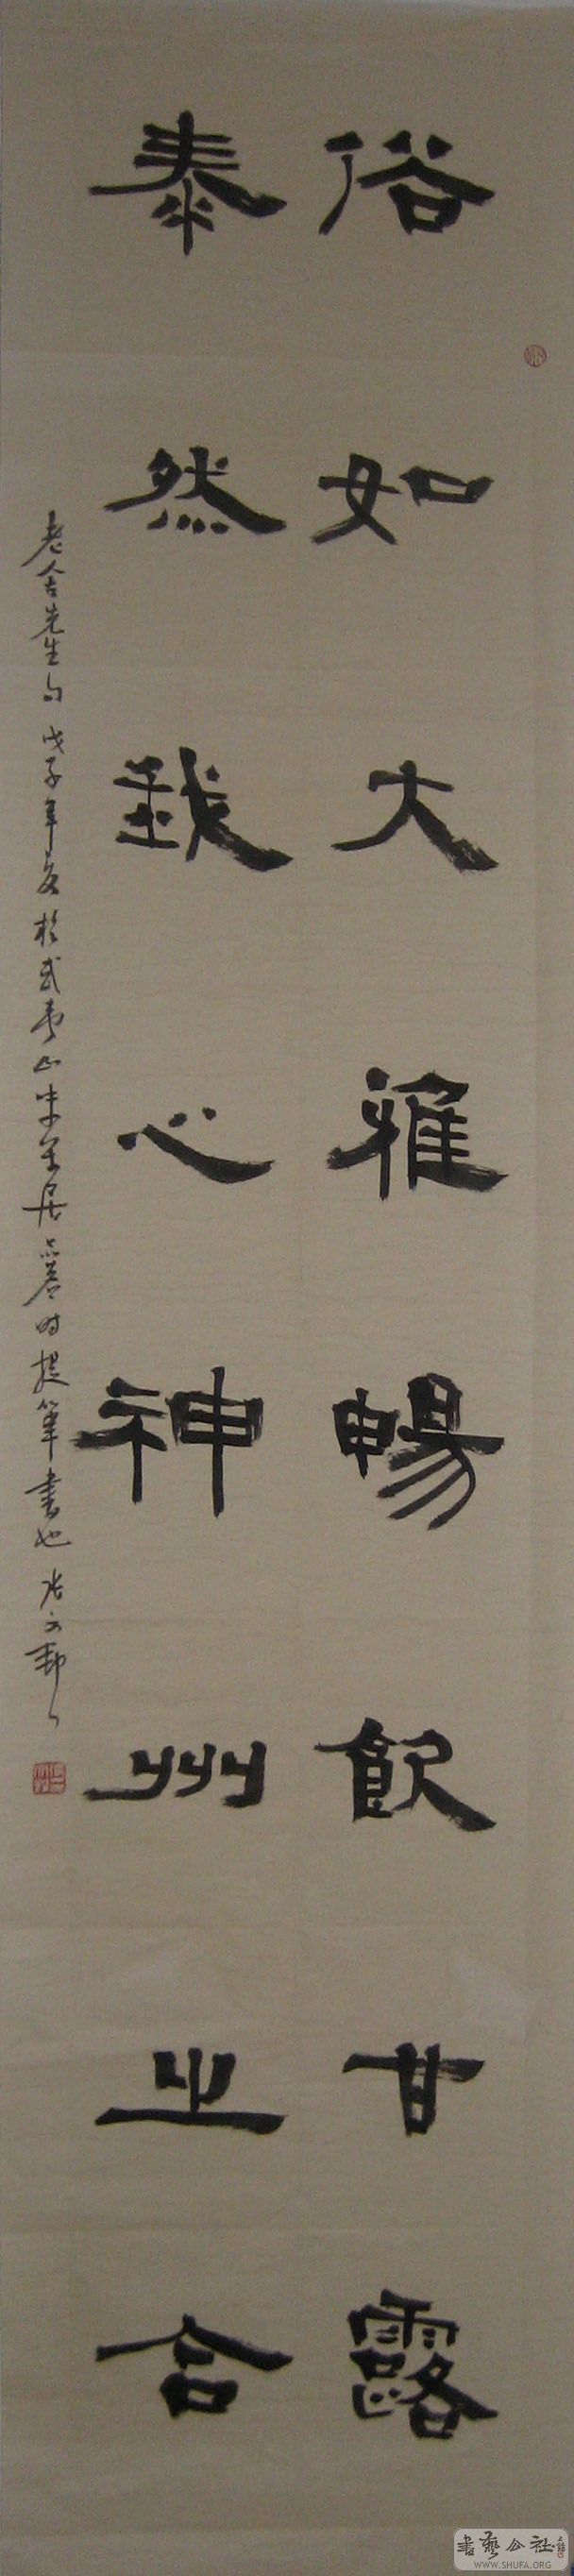 俗如大雅暢飲甘露
泰然我心神州之合
老舍先生句 戊子年夏於武夷山 居 時提筆書也 张文
書藝公社
WWW.SHUFA.ORG